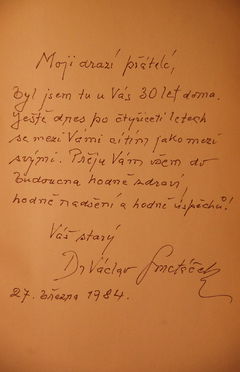 Moji drazí přátelé,
byl jsem tu u Vás 30 let doma.
Ještě dnes po čtyřiceti letech
se mezi Vámi cítím jako mezi
svými. Přeju Vám všem do
budoucna hodně zdraví,
hodně nadšení a hodně úspěchů!
Váš starý
Dr Václav Smetáček
27. března 1984.